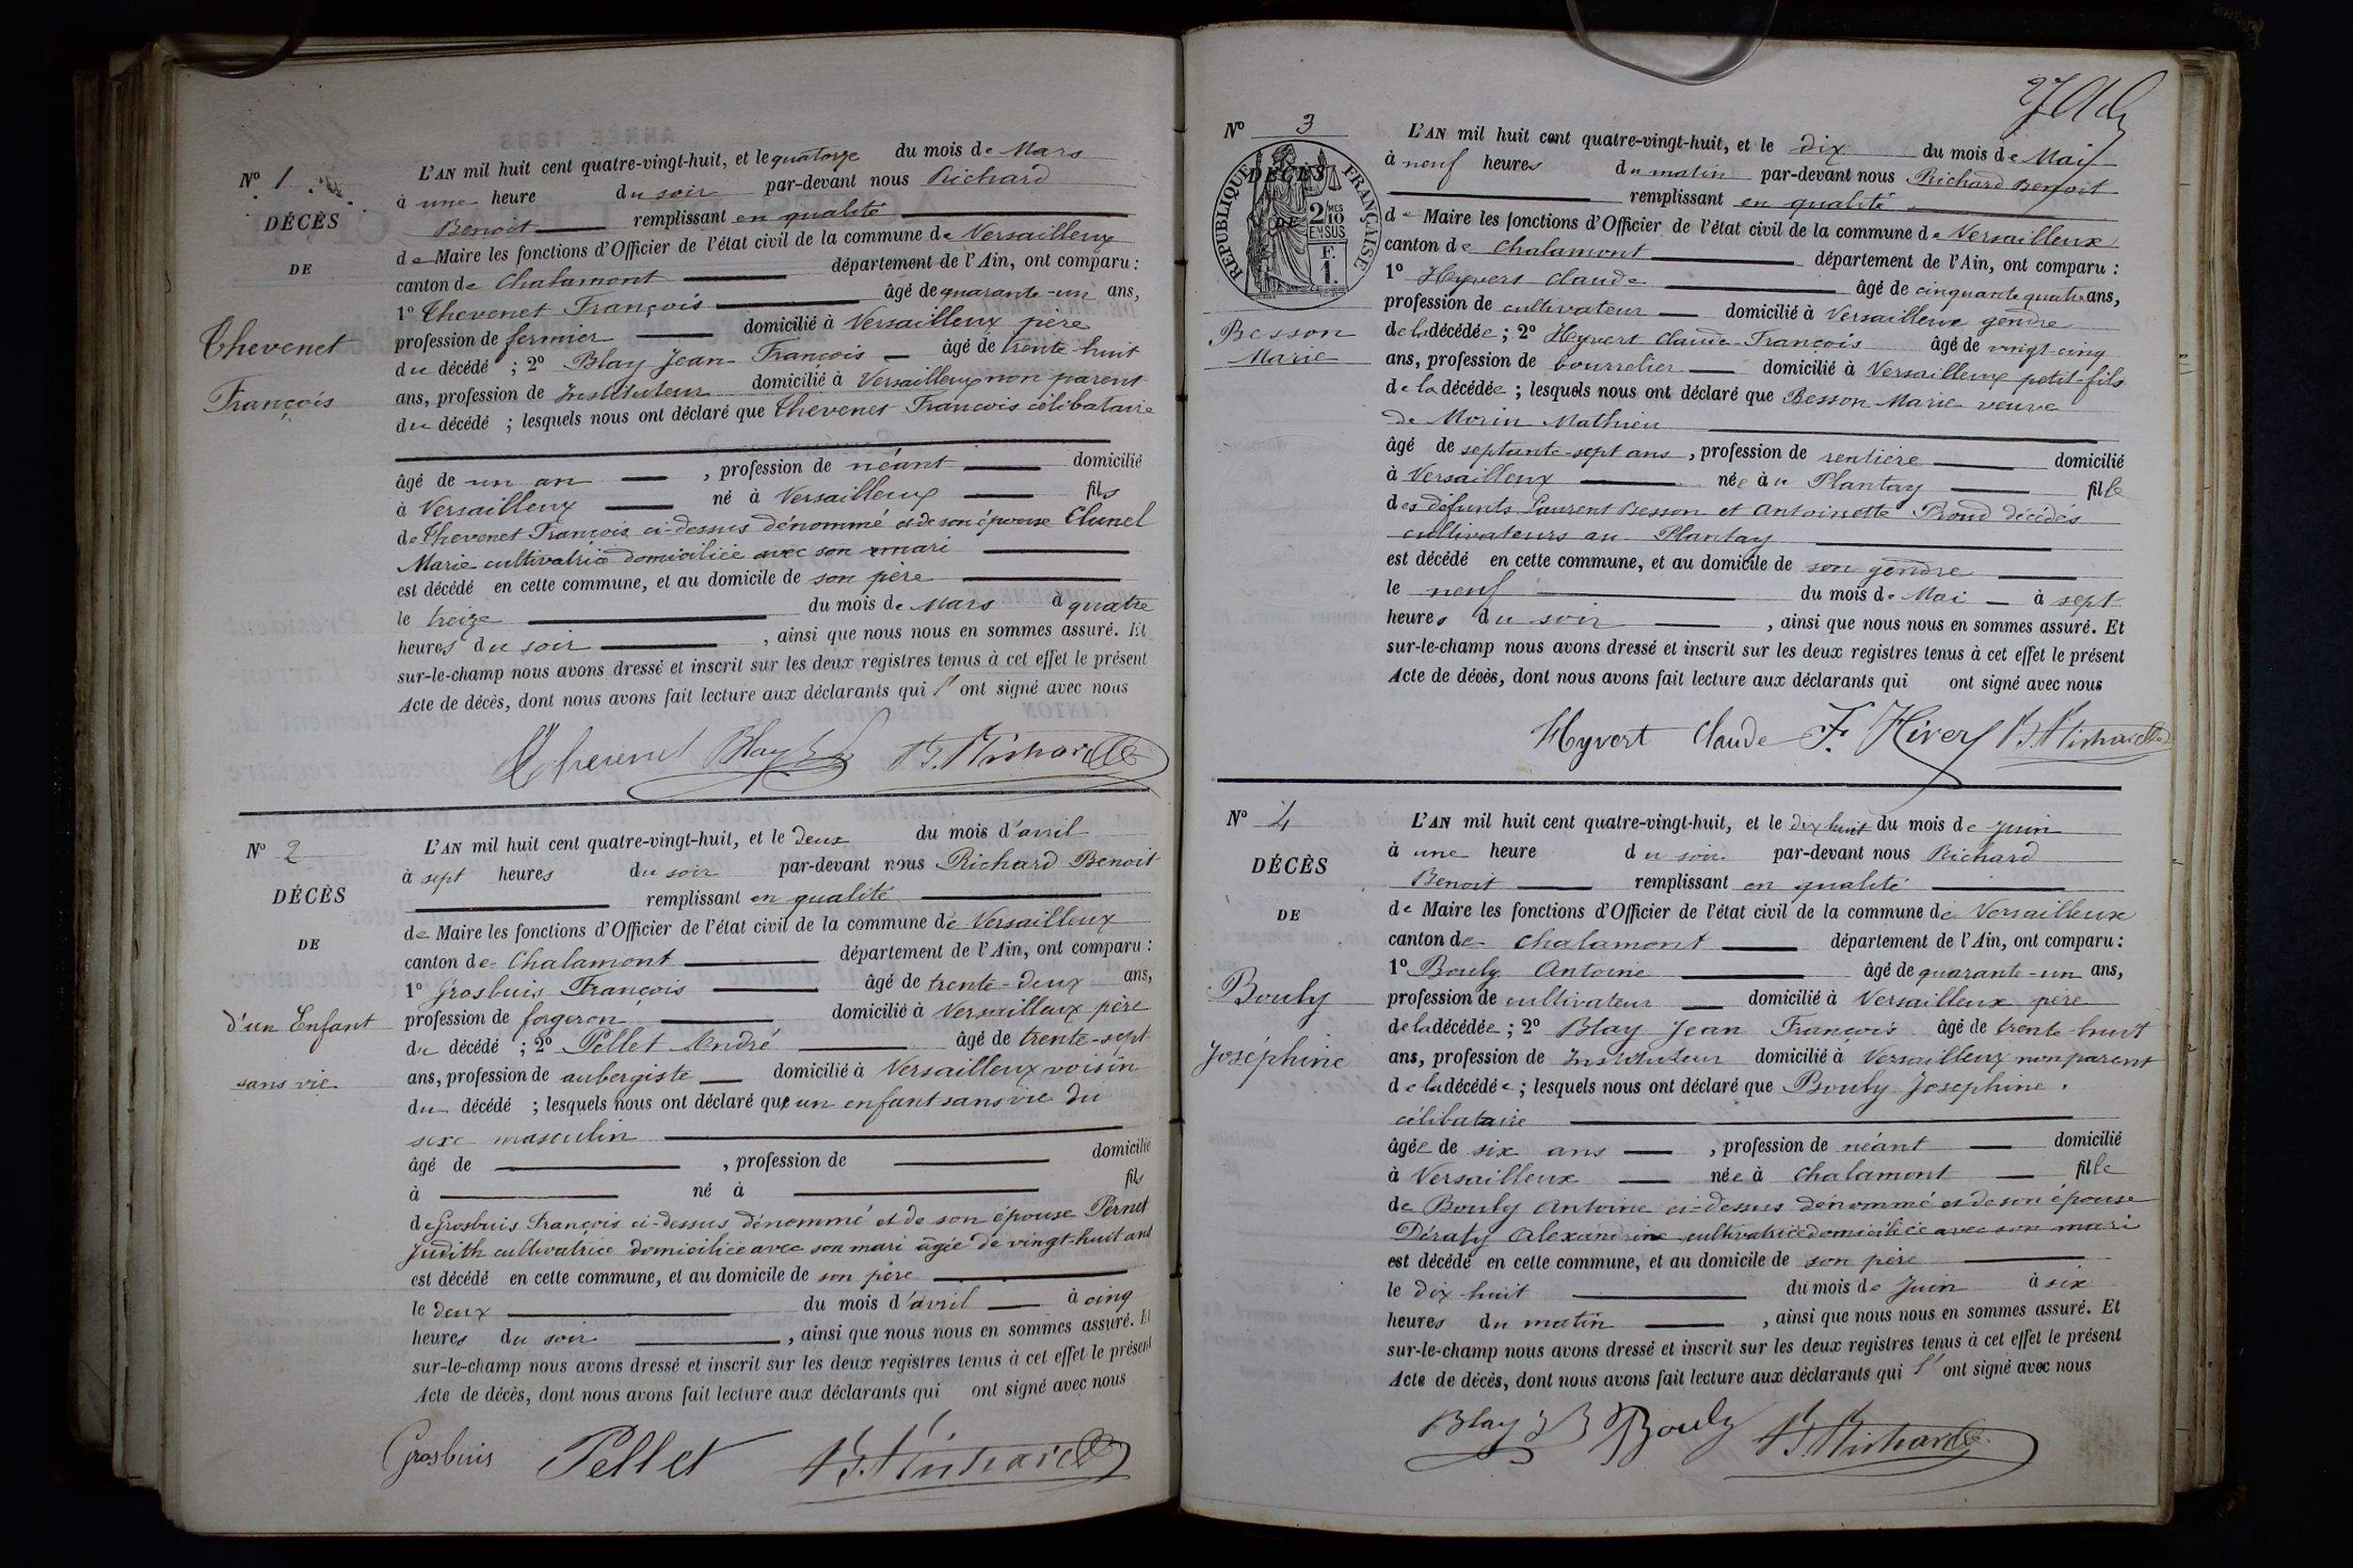 N° 1
DÉCÈS
DE
Thevenet
François
L'AN mil huit cent quatre-vingt-huit, et le quatorze du mois de Mars
à une heure du soir par-devant nous Richard
Benoit remplissant en qualité
de Maire les fonctions d'Officier de l'état civil de la commune de Versailleux
canton de Chalamont département de l'Ain, ont comparu :
1° Thevenet François âgé de quarante-un ans,
profession de fermier domicilié à Versailleux père
du décédé ; 2° Blay Jean-François âgé de trente huit
ans, profession de Instituteur domicilié à Versailleux non parent
du décédé ; lesquels nous ont déclaré que Thevenet François célibataire
âgé de un an , profession de néant domicilié
à Versailleux né à Versailleux fils
de Thevenet François ci-dessus dénommé et de son épouse Clunel
Marie cultivatrice domiciliée avec son mari
est décédé en cette commune, et au domicile de son père
le treize du mois de Mars à quatre
heures du soir , ainsi que nous nous en sommes assuré. Et
sur-le-champ nous avons dressé et inscrit sur les deux registres tenus à cet effet le présent
Acte de décès, dont nous avons fait lecture aux déclarants qui l' ont signé avec nous
Thevenet Blay B. Richard
N° 2
DÉCÈS
DE
d'un Enfant
sans vie
L'AN mil huit cent quatre-vingt-huit, et le deux du mois d'avril
à sept heures du soir par-devant nous Richard Benoit
remplissant en qualité
de Maire les fonctions d'Officier de l'état civil de la commune de Versailleux
canton de Chalamont département de l'Ain, ont comparu :
1° Grosbuis François âgé de trente-deux ans,
profession de forgeron domicilié à Versailleux père
du décédé ; 2° Pellet André âgé de trente-sept
ans, profession de aubergiste domicilié à Versailleux voisin
du décédé ; lesquels nous ont déclaré que un enfant sans vie du
sexe masculin
âgé de , profession de domicilié
à né à fils
de Grosbuis François ci-dessus dénommé et de son épouse Pernet
Judith cultivatrice domiciliée avec son mari âgée de vingt-huit ans
est décédé en cette commune, et au domicile de son père
le deux du mois d'avril à cinq
heures du soir , ainsi que nous nous en sommes assuré. Et
sur-le-champ nous avons dressé et inscrit sur les deux registres tenus à cet effet le présent
Acte de décès, dont nous avons fait lecture aux déclarants qui ont signé avec nous
Grosbuis Pellet B. Richard
N° 3
RÉPUBLIQUE FRANÇAISE
DÉCÈS
DE
2/10 MES
EN SUS
F.
1.
Besson
Marie
L'AN mil huit cent quatre-vingt-huit, et le dix du mois de Mai
à neuf heures du matin par-devant nous Richard Benoit
remplissant en qualité
de Maire les fonctions d'Officier de l'état civil de la commune de Versailleux
canton de Chalamont département de l'Ain, ont comparu :
1° Hyvert Claude âgé de cinquante quatre ans,
profession de cultivateur domicilié à Versailleux gendre
de la décédée ; 2° Hyvert Claude-François âgé de vingt-cinq
ans, profession de bourrelier domicilié à Versailleux petit-fils
de la décédée ; lesquels nous ont déclaré que Besson Marie veuve
de Morin Mathieu
âgé de septante-sept ans , profession de rentière domicilié
à Versailleux née au Plantay fille
des défunts Laurent Besson et Antoinette Proud décédés
cultivateurs au Plantay
est décédé en cette commune, et au domicile de son gendre
le neuf du mois de Mai à sept
heures du soir , ainsi que nous nous en sommes assuré. Et
sur-le-champ nous avons dressé et inscrit sur les deux registres tenus à cet effet le présent
Acte de décès, dont nous avons fait lecture aux déclarants qui ont signé avec nous
Hyvert Claude F. Hivert B. Richard
N° 4
DÉCÈS
DE
Bouly
Joséphine
L'AN mil huit cent quatre-vingt-huit, et le dix huit du mois de Juin
à une heure du soir par-devant nous Richard
Benoit remplissant en qualité
de Maire les fonctions d'Officier de l'état civil de la commune de Versailleux
canton de Chalamont département de l'Ain, ont comparu :
1° Bouly Antoine âgé de quarante-un ans,
profession de cultivateur domicilié à Versailleux père
de la décédée ; 2° Blay Jean François âgé de trente-huit
ans, profession de Instituteur domicilié à Versailleux non parent
de la décédée ; lesquels nous ont déclaré que Bouly Josephine
célibataire
âgée de six ans , profession de néant domicilié
à Versailleux née à Chalamont fille
de Bouly Antoine ci-dessus dénommé et de son épouse
Dératy Alexandrine cultivatrice domiciliée avec son mari
est décédé en cette commune, et au domicile de son père
le dix-huit du mois de Juin à six
heures du matin , ainsi que nous nous en sommes assuré. Et
sur-le-champ nous avons dressé et inscrit sur les deux registres tenus à cet effet le présent
Acte de décès, dont nous avons fait lecture aux déclarants qui l' ont signé avec nous
Blay Bouly B. Richard